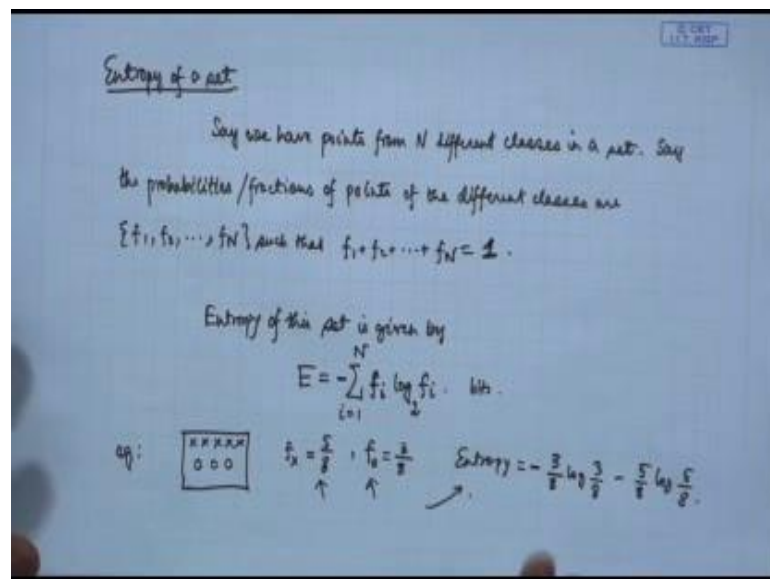 Entropy of a set
Say we have points from N different classes in a set. Say
the probabilities/fractions of points of the different classes are
{f1, f2, ..., fN} such that f1+f2+...+fN = 1.
Entropy of this set is given by
E = -∑_{i=1}^{N} fi log_2 fi. bits.
eg: xxxxx fx = 5/8, fo = 3/8 Entropy = -3/8 log 3/8 - 5/8 log 5/8.
o o o